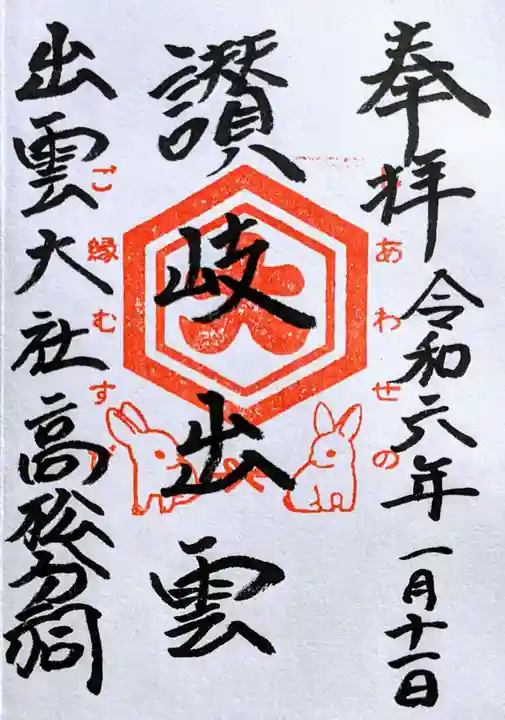 奉拝 令和六年 一月十一日
しあわせの
讃岐出雲
大
ご縁むすび
出雲大社高松分祠